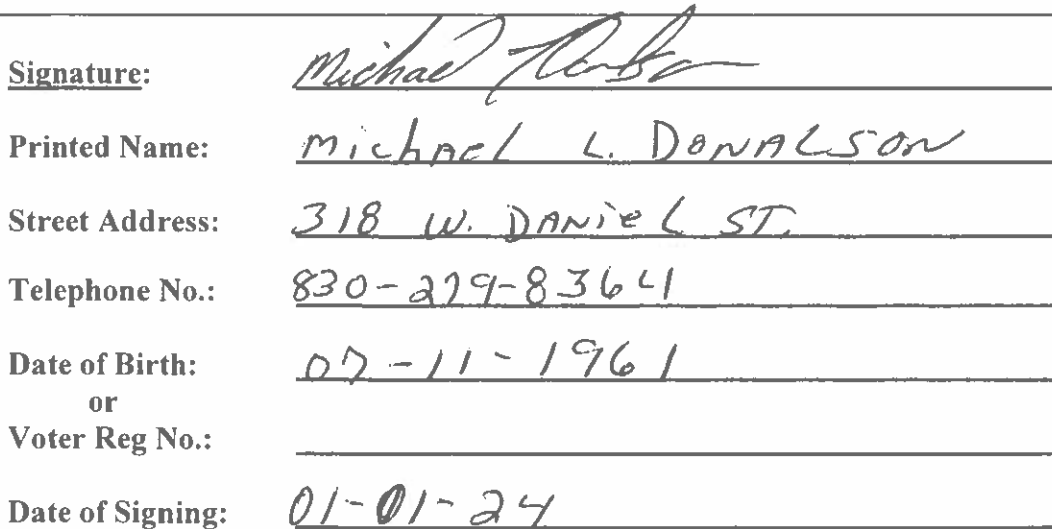 Signature: Michael
Printed Name: Michael L. Donalson
Street Address: 318 W. Daniel St.
Telephone No.: 830-279-8364
Date of Birth: 07-11-1961
or
Voter Reg No.:
Date of Signing: 01-01-24